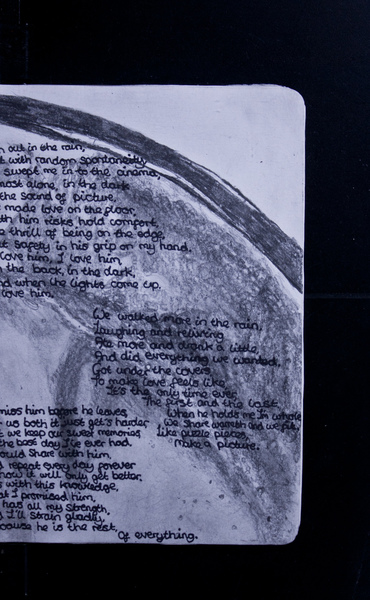 out in the rain,
with random spontaneity
swept me in to the cinema,
most alone, in the dark
the sound of picture,
made love on the floor,
him risks hold comfort,
thrill of being on the edge,
safety in his grip on my hand.
love him, I love him
the back, in the dark,
and when the lights come up.
love him.
We walked more in the rain,
Laughing and reliving
Ate more and drank a little
And did everything we wanted.
Got under the covers
To make love feels like
It's the only time ever
The first and the last.
When he holds me I'm whole
We share warmth and we fit,
Like puzzle pieces
Make a picture.
miss him before he leaves
us both it just get's harder
we keep our sweet memories
the best day I've ever had
could share with him,
repeat every day forever
how it will only get better.
with this knowledge,
I promised him,
has all my strength,
I'll strain gladly,
because he is the rest,
Of everything.